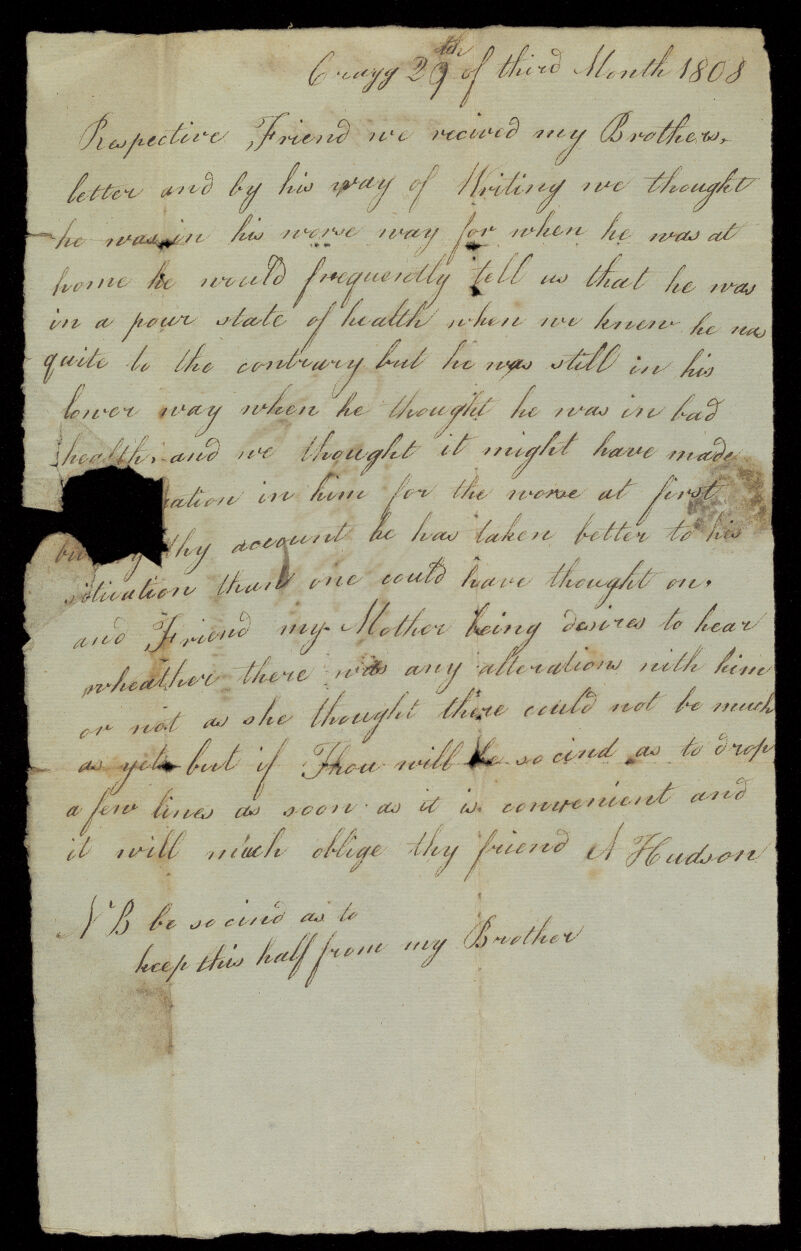 Cragg 29th of third Month 1808
Respective Friend we recived my Brothers,
letter and by his way of Writing we thought
he was in his worse way for when he was at
home he would frequerdly tell us that he was
in a pour state of health when we knew he was
quite to the contrary but he was still in his
lower way when he thought he was in bad
health, and we thought it might have made
in him for the worse at first
thy account he has taken better to his
sitiuation than one could have thought on.
and Friend my Mother being desires to hear
wheather there was any alterations with him
or not as she thought there could not be much
as yet but if Thou will be so cind as to drop
a few lines as soon as it is convenient and
it will much oblige thy friend A Hudson
NB be so cind as to
keep this half from my Brother